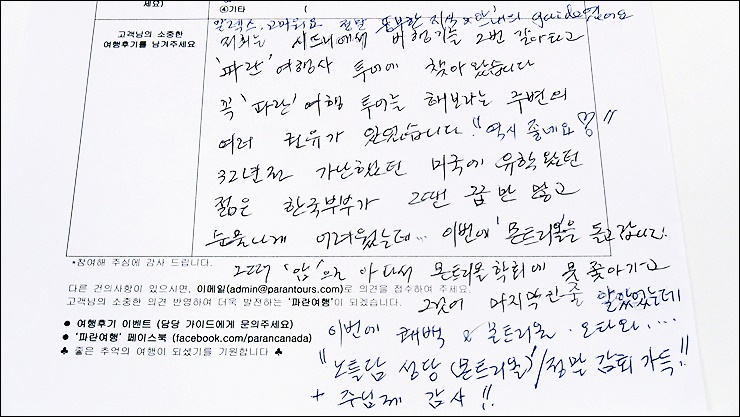 세요)
④기타 (
알렉스, 고마워요 정말 풍부한 지식 & 탄내의 guide였어요
고객님의 소중한
여행후기를 남겨주세요
저희는 시드니에서 비행기를 2번 갈아타고
'파란' 여행사 투어에 찾아왔습니다
꼭 '파란' 여행 투어를 해보라는 주변의
여러 권유가 있었습니다. "역시 좋네요♡"
32년전 가난했던 미국에 유학왔던
젊은 한국부부가 그땐 꿈만 많고
눈물나게 어려웠는데… 이번에 '몬트리올'을 돌고 갑니다.
*참여해 주심에 감사 드립니다.
그때 '암'으로 아파서 몬트리올 학회에 못 쫓아가고
다른 건의사항이 있으시면, 이메일(admin@parantours.com)로 의견을 접수하여 주세요.
고객님의 소중한 의견 반영하여 더욱 발전하는 '파란여행'이 되겠습니다.
그것이 마지막인줄 알았었는데
● 여행후기 이벤트 (담당 가이드에게 문의주세요)
이번에 퀘백 & 몬트리올. 오타와....
● '파란여행' 페이스북 (facebook.com/parancanada)
♣ 좋은 추억의 여행이 되셨기를 기원합니다 ♣
"노틀담 성당 (몬트리올)/정말 감회 가득!!
+ 주님께 감사!!